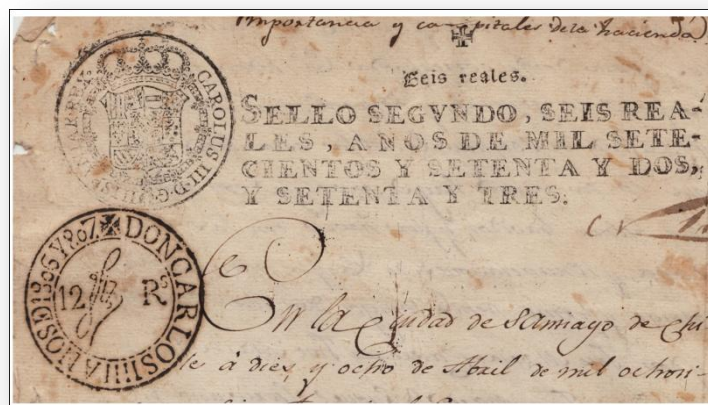 Importancia y capitales de la hacienda
Seis reales.
SELLO SEGVNDO, SEIS REA-
LES, AÑOS DE MIL SETE-
CIENTOS Y SETENTA Y DOS,
Y SETENTA Y TRES.
CAROLUS III·D·G·HISP
REX
DON CARLOS IIII AÑOS D 1806 Y 807
12 Rs
En la Ciudad de Santiago de Chi
le á diez y ocho de Abril de mil ochoci